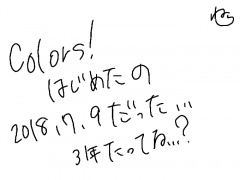 ねら
Colors!
はじめたの
2018,7,9だった...
3年たってね...?